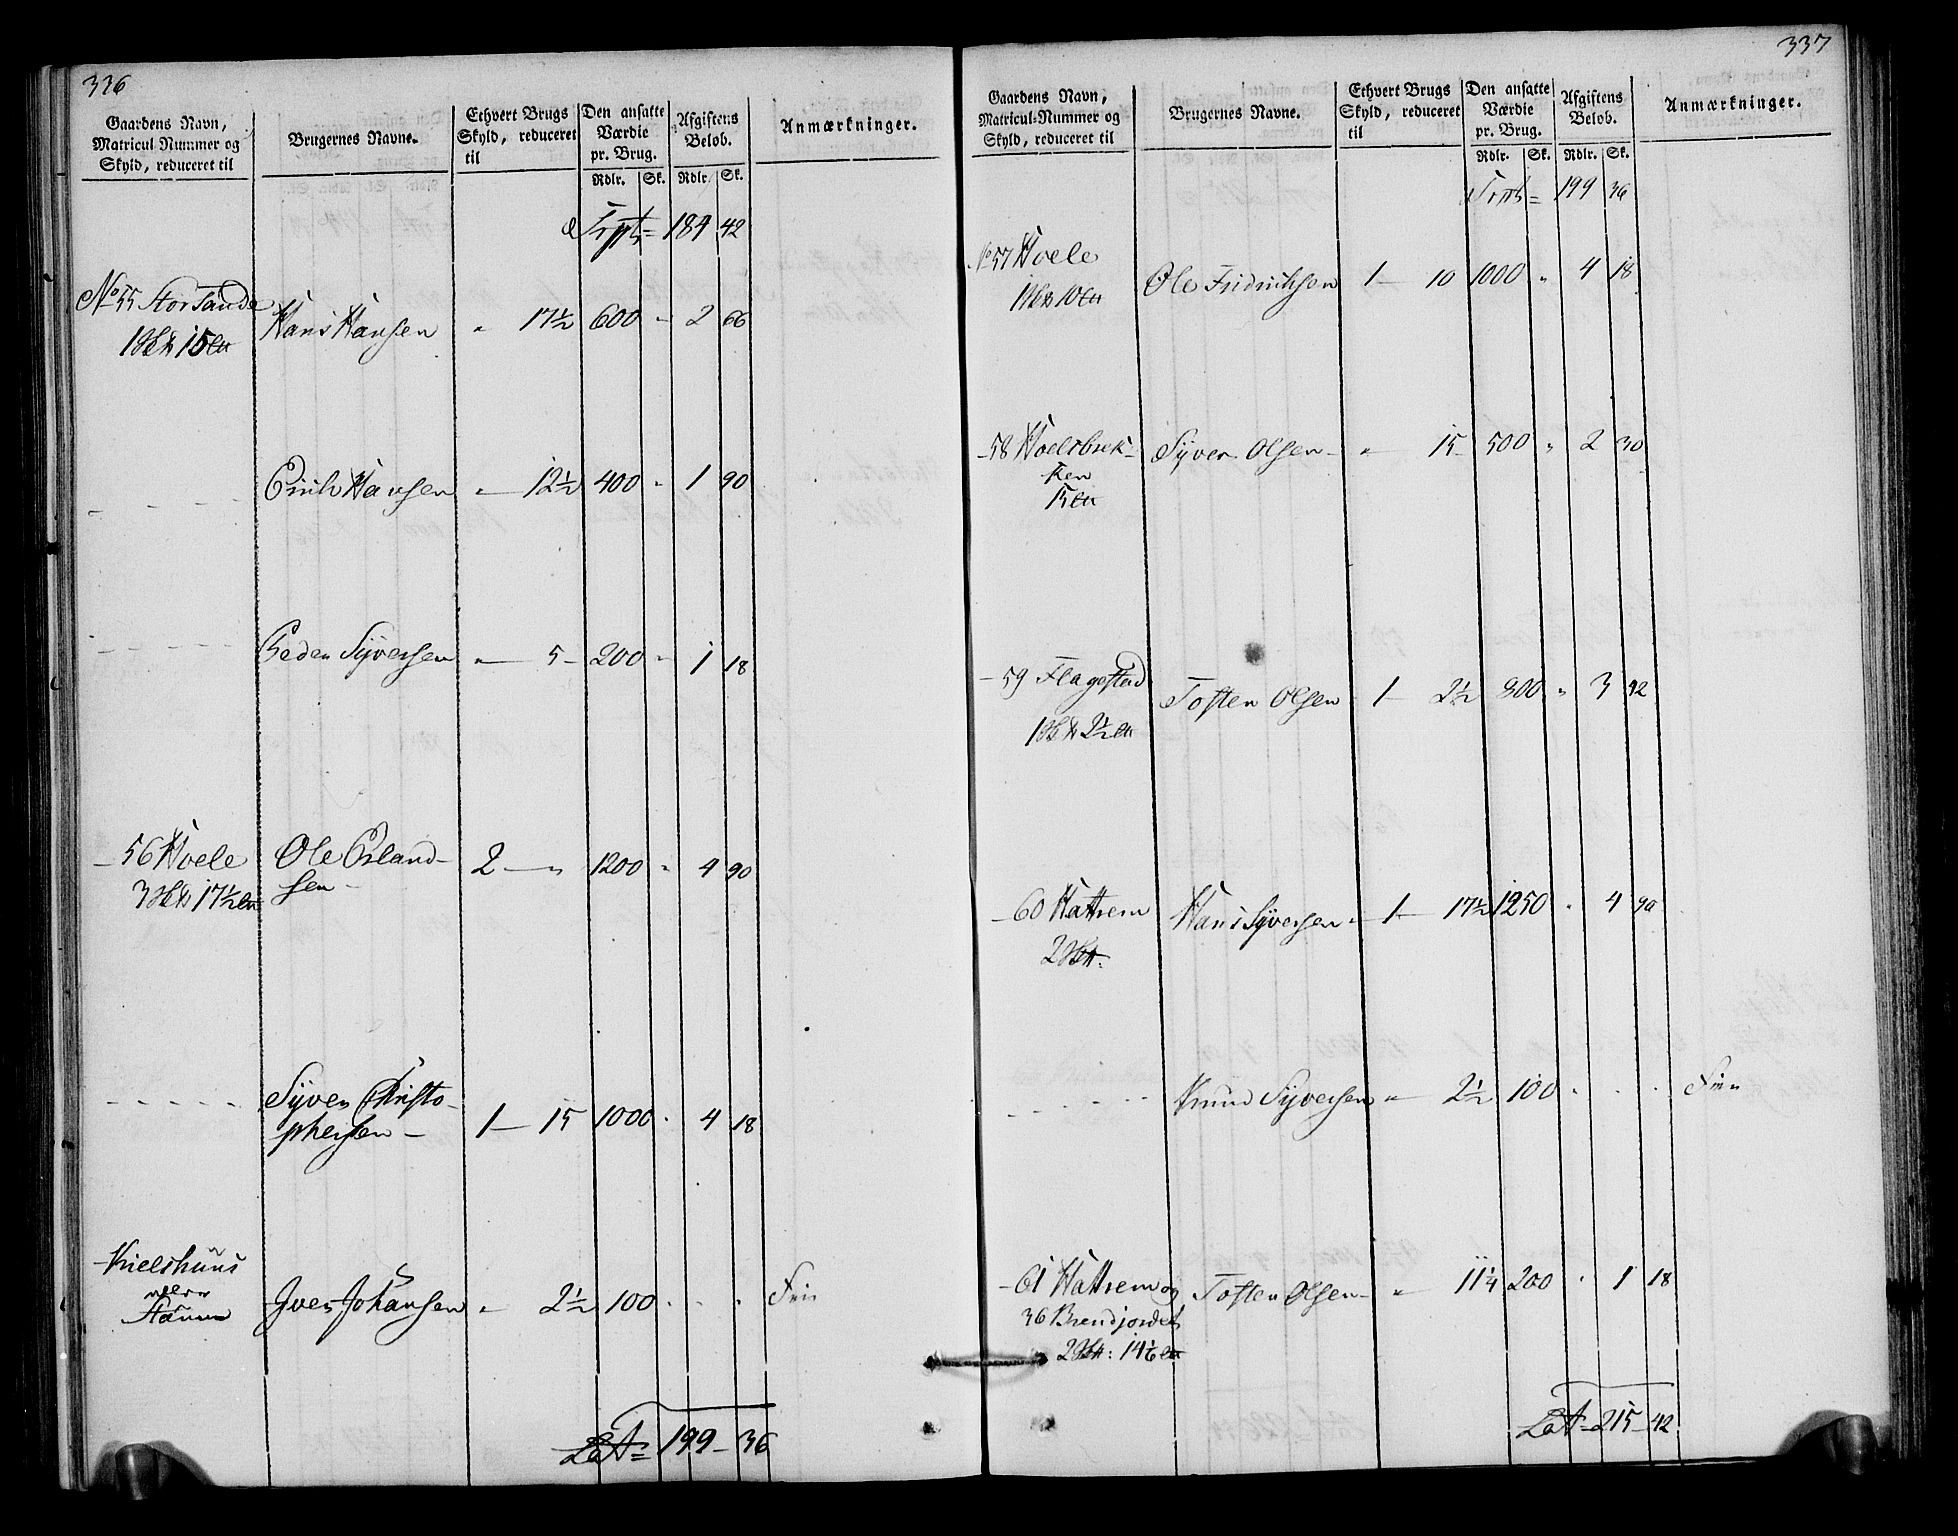 336
Gaardens Navn, Matricul Nummer og Skyld, reduceret til
Brugernes Navne.
Ethvert Brugs Skyld, reduceret til
Den ansatte Værdie pr. Brug.
Afgiftens Beløb.
Anmærkninger.
Rdlr. Sk. Rdlr. Sk.
Trpt = 184 42
No 55 Storsande Hans Hansen " 17½ 600 " 2 66
15
Erich Hansen " 12½ 400 " 1 90
Peder Syversen " 5 200 " 1 18
56 Hoele Ole Erland- 2 " 1200 " 4 90
3 17½ sen
Syver Christo-
phersen 1 15 1000 " 4 18
Kielshuus
eller
Iver Johansen " 2½ 100 " " " Frie
Lat = 199 36
337
Gaardens Navn, Matricul-Nummer og Skyld, reduceret til
Brugernes Navne.
Ethvert Brugs Skyld, reduceret til
Den ansatte Værdie pr. Brug.
Afgiftens Beløb.
Anmærkninger.
Rdlr. Sk. Rdlr. Sk.
Trpt = 199 36
No 57 Hoele Ole Fridrichsen 1 10 1000 " 4 18
1 10
58 Hoelsbrek- Syver Olsen " 15 500 " 2 30
ken
15
59 Flagestad Tosten Olsen 1 2½ 800 " 3 92
1 2½
60 Hattrem Hans Syversen 1 17½ 1250 " 4 90
2
Knud Syversen " 2½ 100 " " " Frie
61 Hattrem og Tosten Olsen " 11¼ 200 " 1 18
36 Brendjordet
2 14
Lat = 215 42